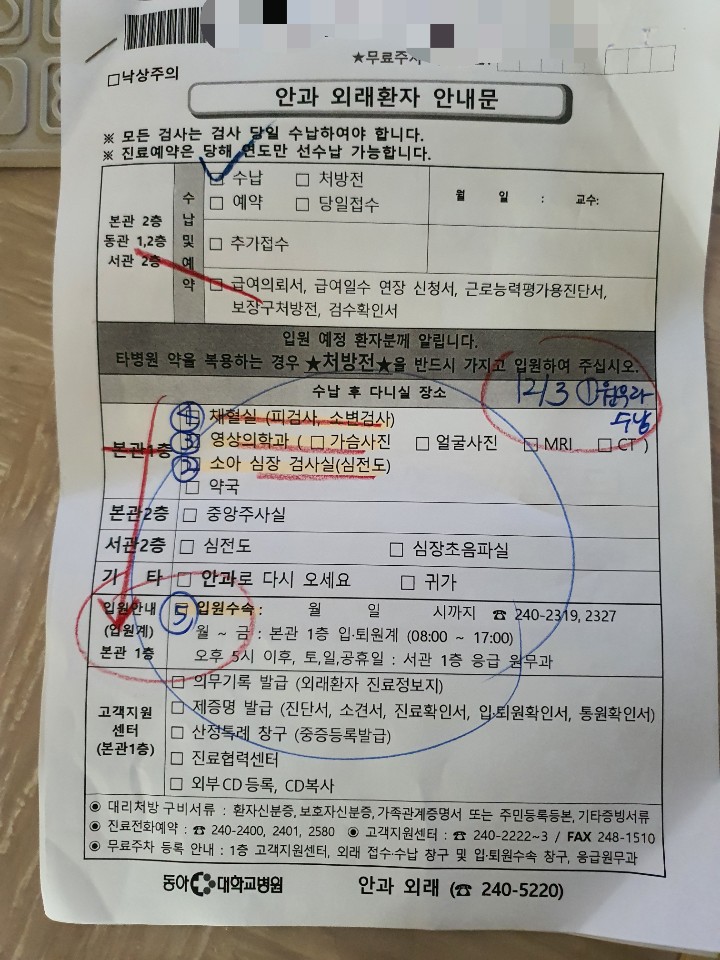 ★무료주차
□낙상주의
안과 외래환자 안내문
※ 모든 검사는 검사 당일 수납하여야 합니다.
※ 진료예약은 당해 연도만 선수납 가능합니다.
본관 2층
동관 1,2층
서관 2층
수납 및 예약
□ 수납 □ 처방전
□ 예약 □ 당일접수
월 일 : 교수:
□ 추가접수
□ 급여의뢰서, 급여일수 연장 신청서, 근로능력평가용진단서,
보장구처방전, 검수확인서
입원 예정 환자분께 알립니다.
타병원 약을 복용하는 경우 ★처방전★을 반드시 가지고 입원하여 주십시오.
수납 후 다니실 장소
12/3 ①
수납
본관1층
④ 채혈실 (피검사, 소변검사)
③ 영상의학과 ( □ 가슴사진 □ 얼굴사진 □ MRI □ CT )
② □ 소아 심장 검사실(심전도)
□ 약국
본관2층 □ 중앙주사실
서관2층 □ 심전도 □ 심장초음파실
기 타 □ 안과로 다시 오세요 □ 귀가
입원안내
(입원계)
본관 1층
⑤ □ 입원수속 : 월 일 시까지 ☎ 240-2319, 2327
월 ~ 금 : 본관 1층 입·퇴원계 (08:00 ~ 17:00)
오후 5시 이후, 토,일,공휴일 : 서관 1층 응급 원무과
고객지원
센터
(본관1층)
□ 의무기록 발급 (외래환자 진료정보지)
□ 제증명 발급 (진단서, 소견서, 진료확인서, 입·퇴원확인서, 통원확인서)
□ 산정특례 창구 (중증등록발급)
□ 진료협력센터
□ 외부CD등록, CD복사
◉ 대리처방 구비서류 : 환자신분증, 보호자신분증, 가족관계증명서 또는 주민등록등본, 기타증빙서류
◉ 진료전화예약 : ☎ 240-2400, 2401, 2580 ◉ 고객지원센터 : ☎ 240-2222~3 / FAX 248-1510
◉ 무료주차 등록 안내 : 1층 고객지원센터, 외래 접수·수납 창구 및 입·퇴원수속 창구, 응급원무과
동아대학교병원 안과 외래 (☎ 240-5220)